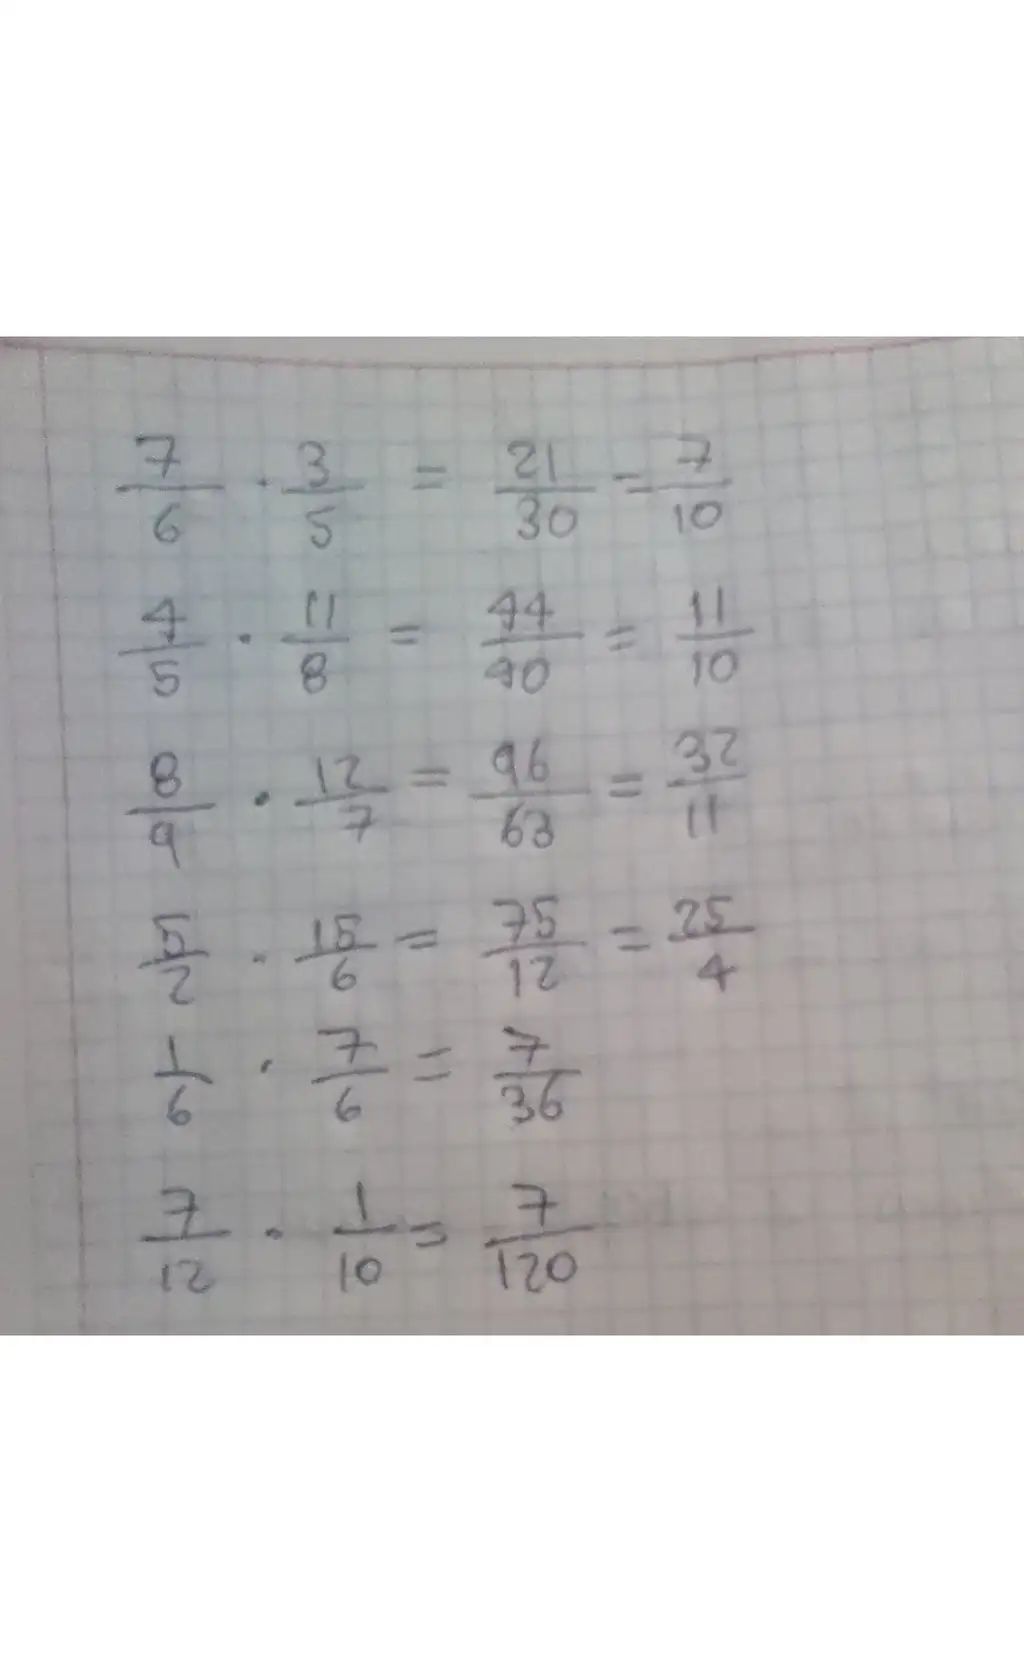 7/6 · 3/5 = 21/30 = 7/10
4/5 · 11/8 = 44/40 = 11/10
8/9 · 12/7 = 96/63 = 32/11
5/2 · 15/6 = 75/12 = 25/4
1/6 · 7/6 = 7/36
7/12 · 1/10 = 7/120